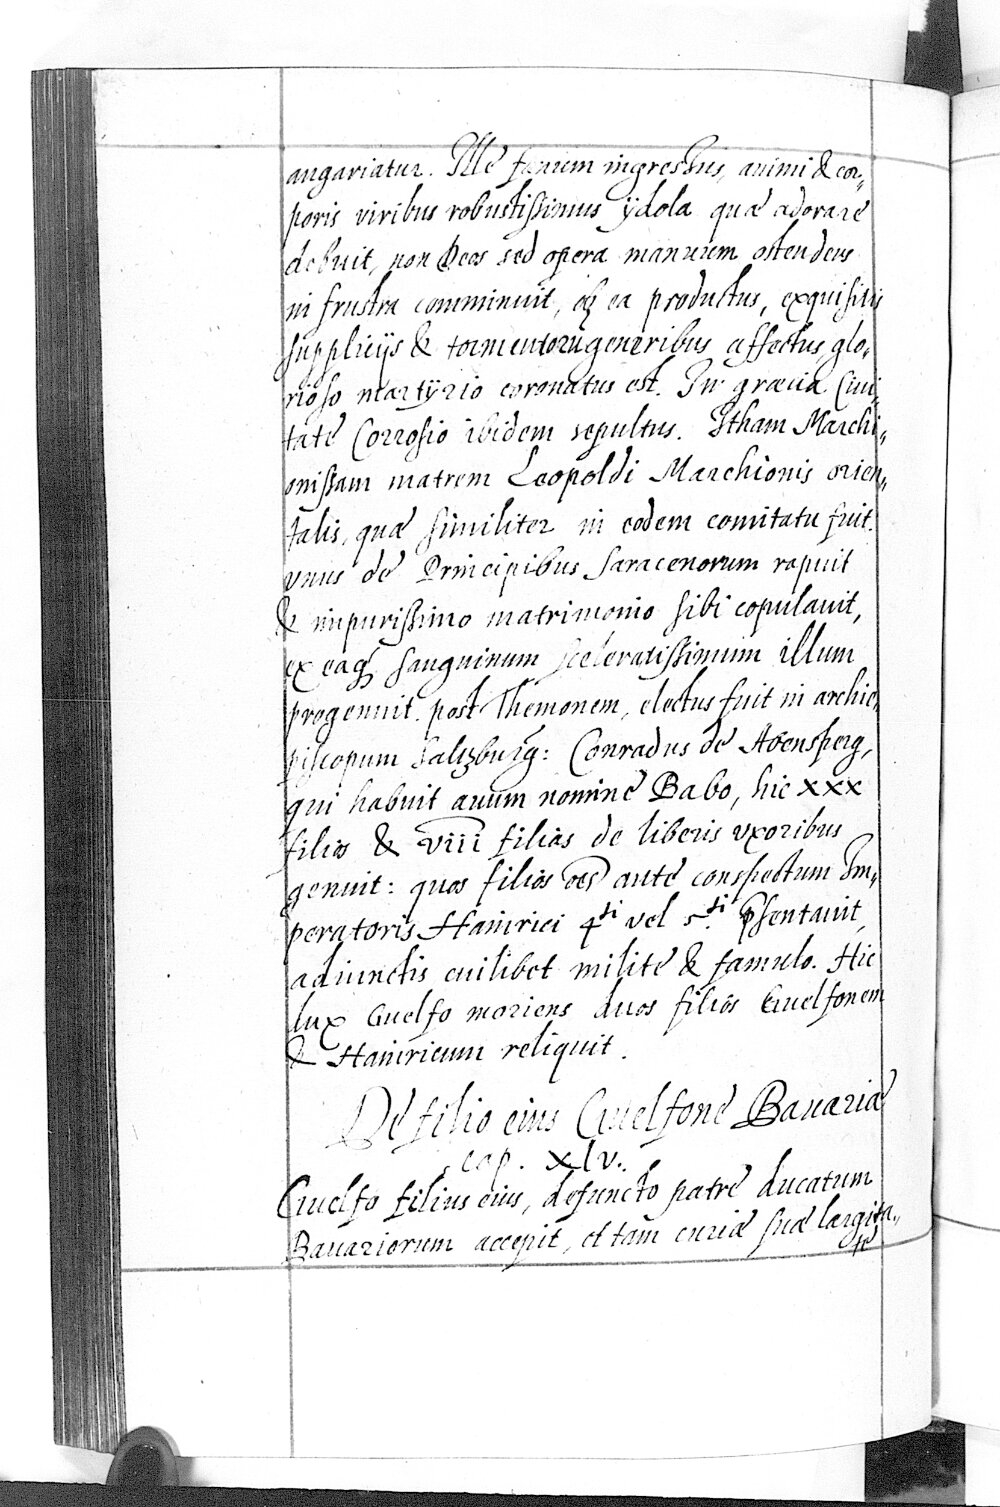 angariatur. Ille fanum ingressus, animi & cor„
poris viribus robustissimus ÿdola quæ adorare
debuit, non Deos sed opera manuum ostendens
in frustra comminuit, ob ea productus, exquisitis
supplicijs & tormentorū generibus affectus, glo„
rioso martÿrio coronatus est. In græcia Ciui„
tate Corrosio ibidem sepultus. Itham Marchi„
onissam matrem Leopoldi Marchionis orien„
talis, quæ similiter in eodem comitatu fuit.
vnus de Principibus Saracenorum rapuit
& impurissimo matrimonio sibi copulauit,
ex eaq; sanguinum sceleratissimum illum
progenuit. post Themonem, electus fuit in archie„
piscopum Saltzburg: Conradus de Abensperg,
qui habuit auum nomine Babo, hic xxx
filios & viii filias de liberis vxoribus
genuit: quos filios oēs ante conspectum Im„
peratoris Hainrici 4ti vel 5.ti p̄sentauit,
adiunctis cuilibet milite & famulo. Hic
lux Guelfo moriens duos filios Guelfonem
& Hainricum reliquit.
De filio eius Guelfone Bauariæ
cap. xlv.
Guelfo filius eius, defuncto patre ducatum
Bauariorum accepit, et tam curiæ suæ largita„
te